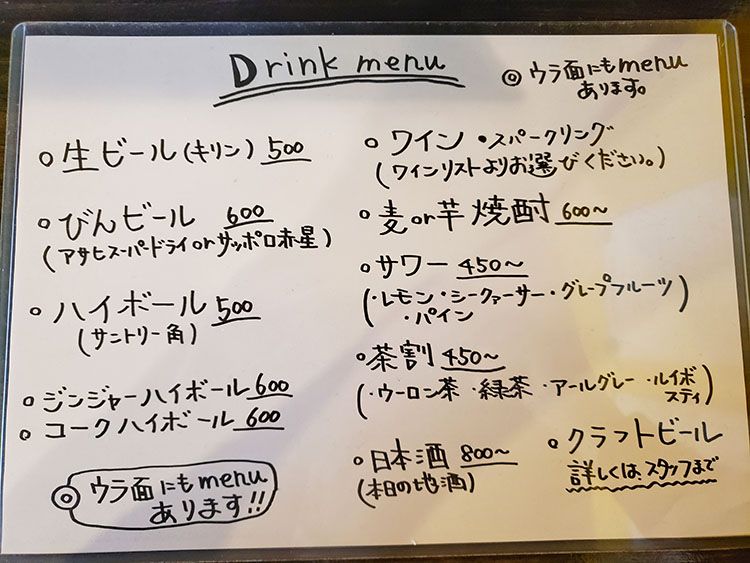 Drink menu
◎ ウラ面にもmenu
あります。
○ 生ビール(キリン) 500
○ びんビール 600
(アサヒスーパードライorサッポロ赤星)
○ ハイボール 500
(サントリー角)
○ ジンジャーハイボール 600
○ コークハイボール 600
◎ ウラ面にもmenu
あります!!
○ ワイン・スパークリング
(ワインリストよりお選びください。)
○ 麦or芋焼酎 600~
○ サワー 450~
(・レモン・シークァーサー・グレープフルーツ)
・パイン
○ 茶割 450~
(・ウーロン茶・緑茶・アールグレー・ルイボ
スティ)
○ 日本酒 800~
(本日の地酒)
○ クラフトビール
詳しくは、スタッフまで